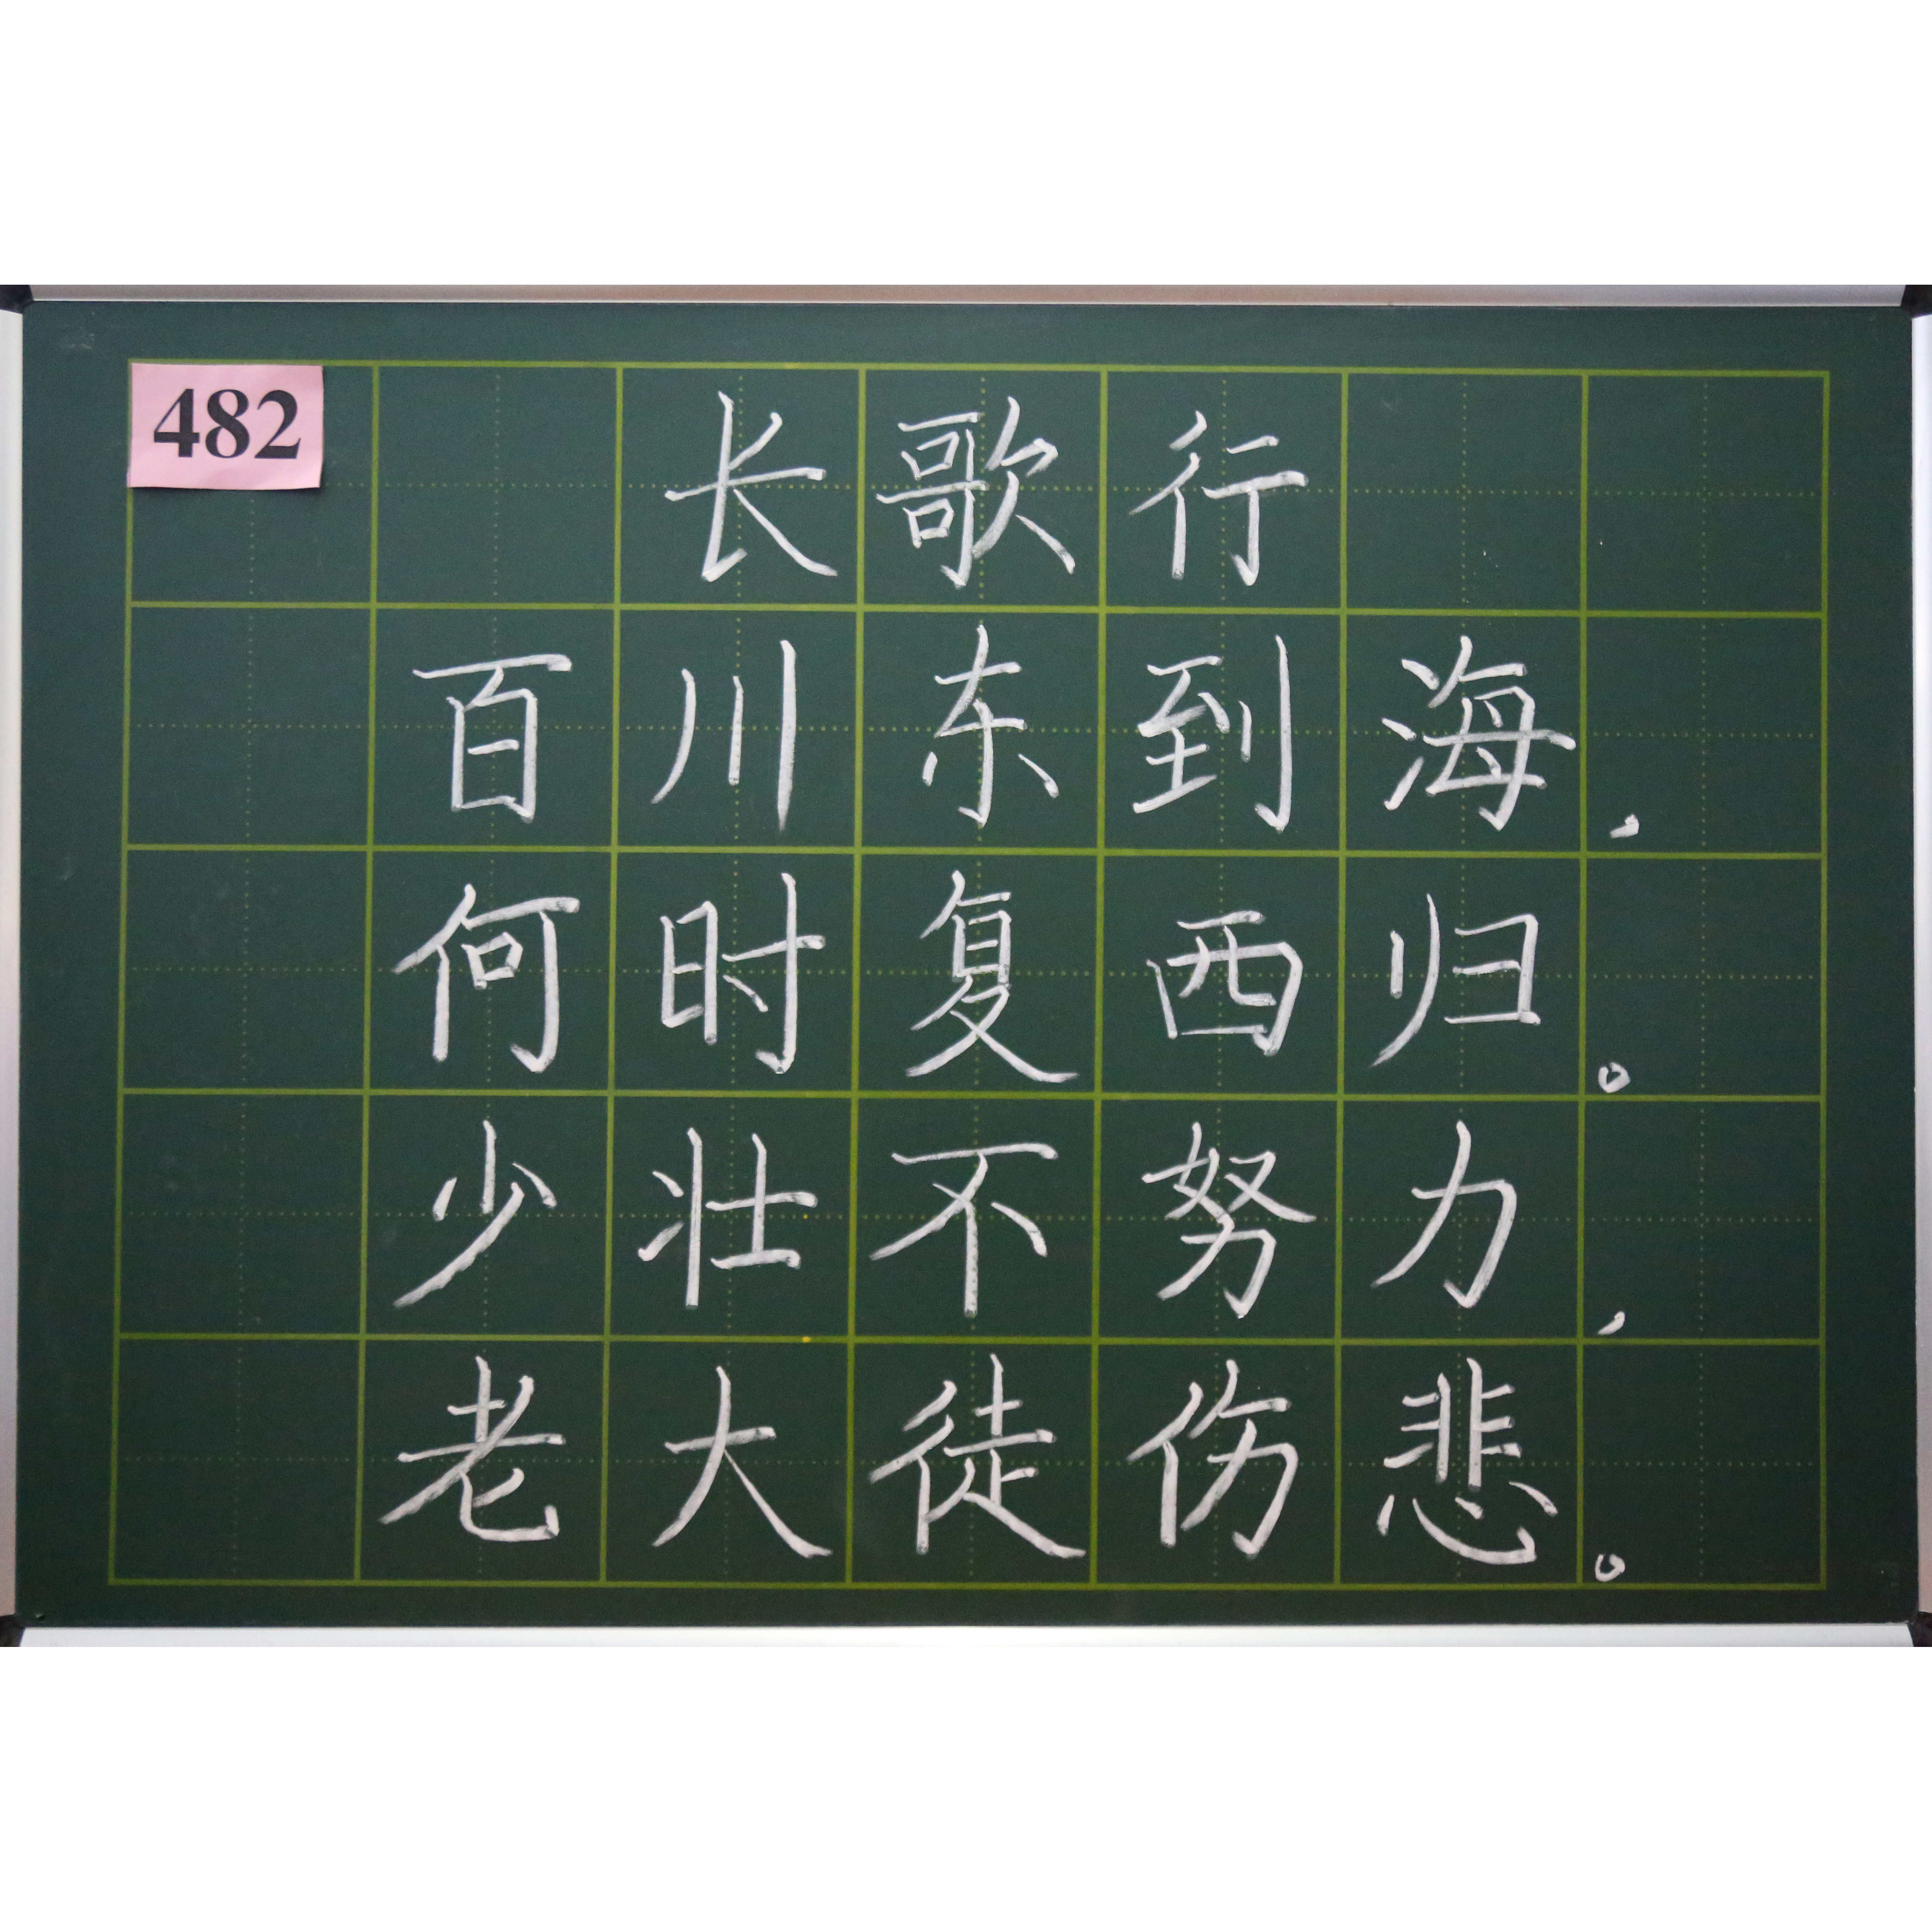 482
长歌行
百川东到海，
何时复西归。
少壮不努力，
老大徒伤悲。